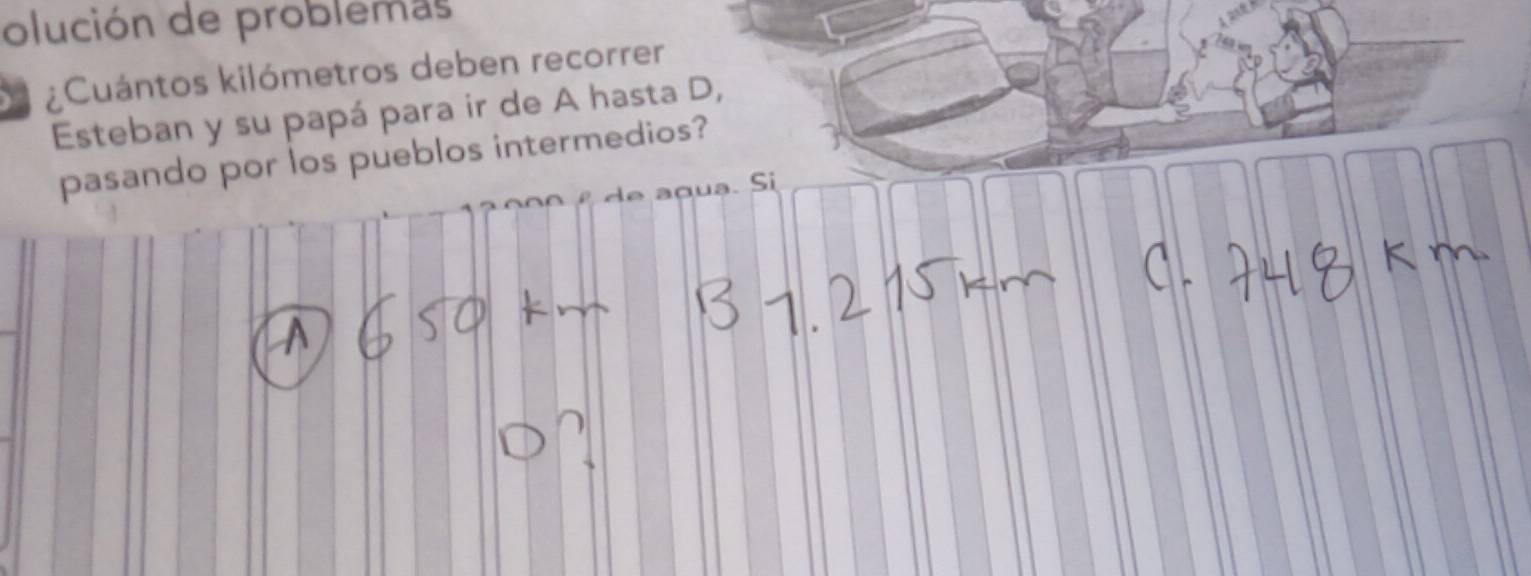 olución de problemas
¿Cuántos kilómetros deben recorrer
Esteban y su papá para ir de A hasta D,
pasando por los pueblos intermedios?
de agua. Si
A 650 km B 1.215 km C. 748 km
D?